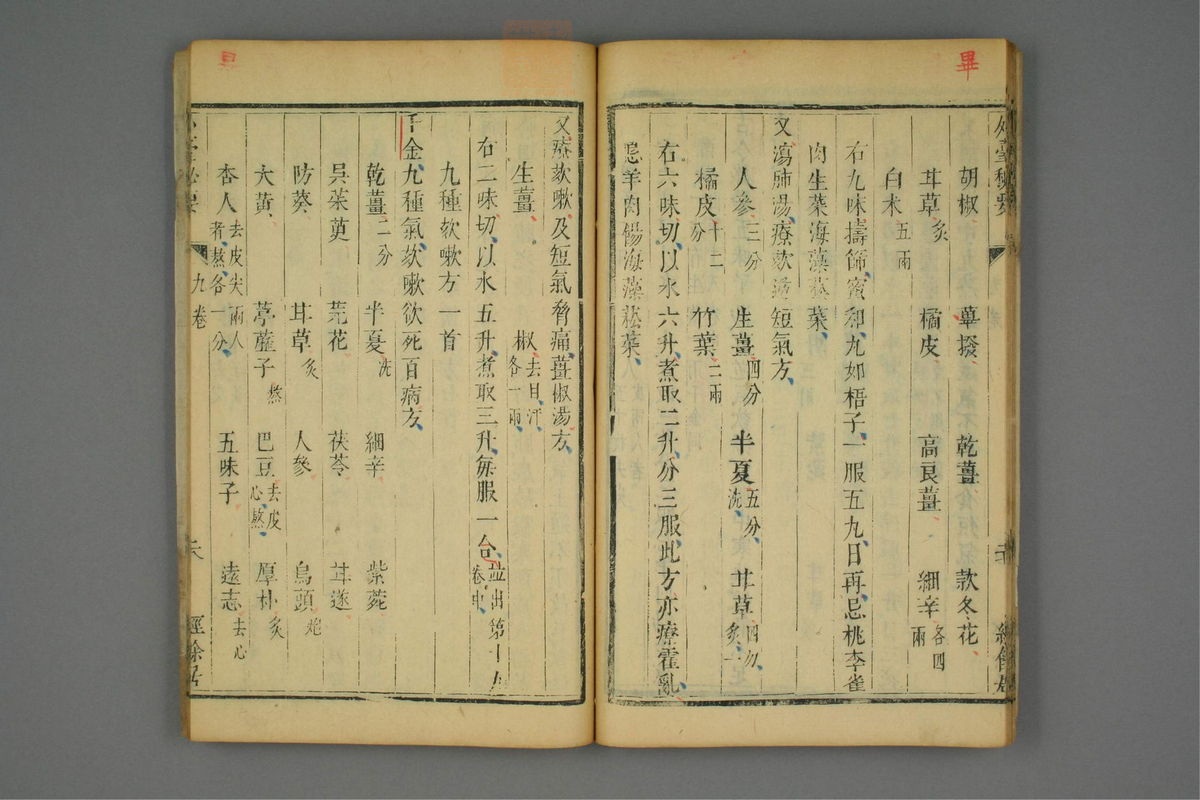 畢
胡椒 蓽撥 乾薑 款冬花
甘草炙 橘皮 高良薑 細辛各四兩
白术五兩
右九味擣篩蜜和丸如梧子一服五丸日再忌桃李雀
肉生菜海藻菘菜
又瀉肺湯療欬逆短氣方
人參三分 生薑四分 半夏五分洗 甘草四分炙
橘皮十二分 竹葉二兩
右六味切以水六升煮取二升分三服此方亦療霍亂
忌羊肉餳海藻菘菜
又療欬嗽及短氣脅痛薑椒湯方
生薑 椒去目汗各一兩
右二味切以水五升煮取三升每服一合並出第十九卷中
九種欬嗽方一首
千金九種氣欬嗽欲死百病方
乾薑二分 半夏洗 細辛 紫菀
吳茱萸 芫花 茯苓 甘遂
防葵 甘草炙 人參 烏頭炮
大黃 葶藶子熬 巴豆去皮心熬 厚朴炙
杏人去皮尖兩人者熬各一分 五味子 遠志去心
九卷 經餘居